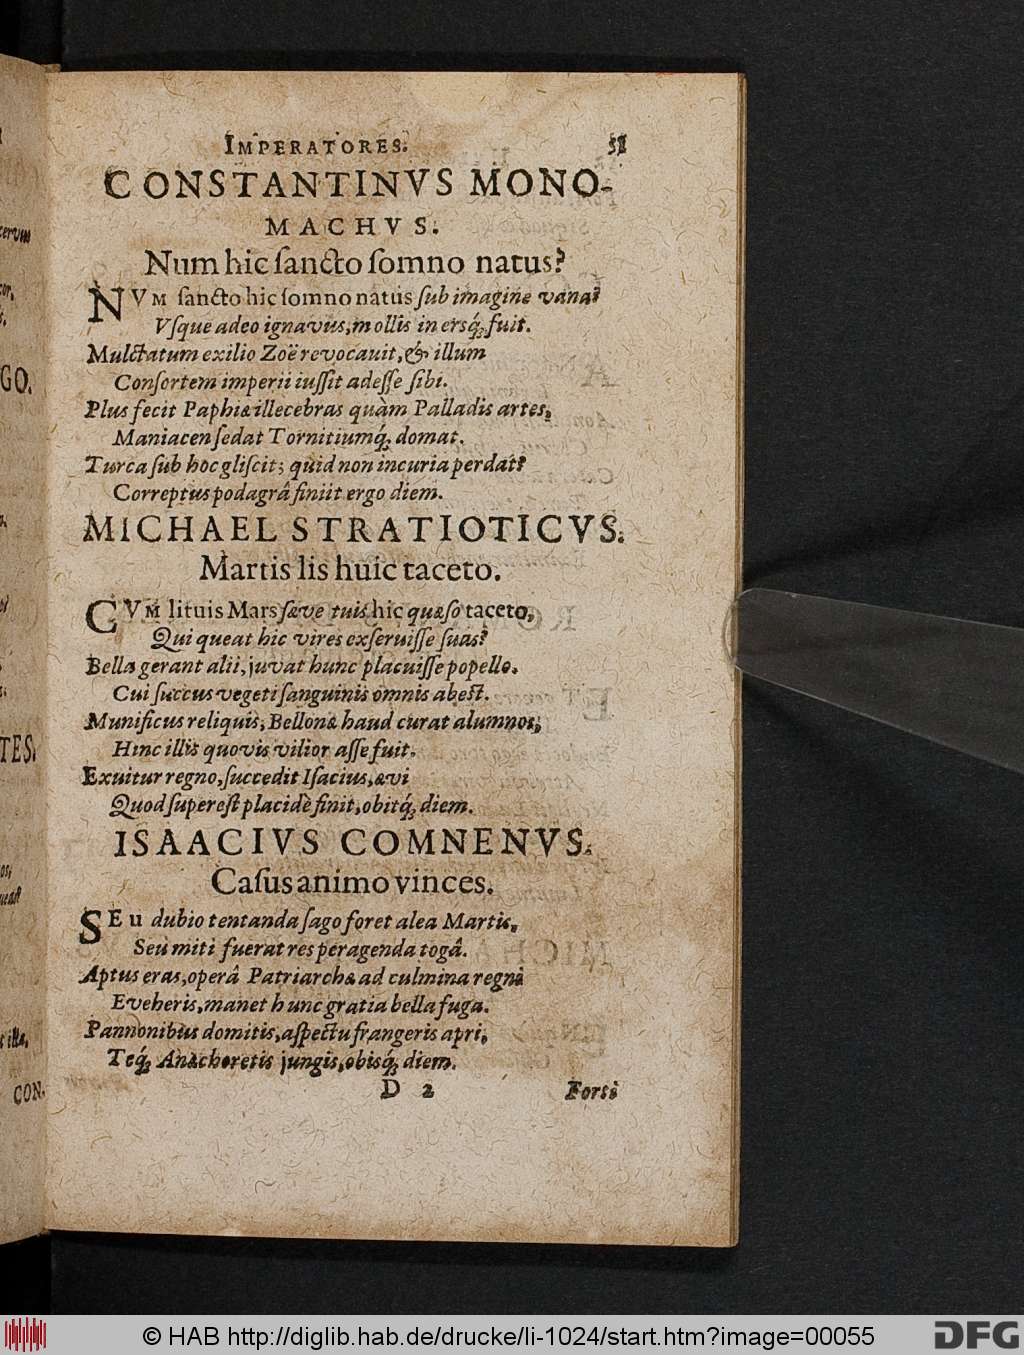 IMPERATORES. 51
CONSTANTINVS MONO-
MACHVS.
Num hic ſancto ſomno natus?
NVM ſancto hic ſomno natus ſub imagine vana?
Vſque adeo ignavus, mollis in ersq́; fuit.
Mulctatum exilio Zoë revocavit, & illum
Conſortem imperii iuſſit adeſſe ſibi.
Plus fecit Paphiæ illecebras quàm Palladis artes,
Maniacen ſedat Tornitiumq́; domat.
Turca ſub hoc gliſcit; quid non incuria perdat?
Correptus podagrâ finiit ergo diem.
MICHAEL STRATIOTICVS.
Martis lis huic taceto.
CVM lituis Mars ſæve tuis hic quæſo taceto,
Qui queat hic vires exſeruiſſe ſuas?
Bella gerant alii, juvat hunc placuiſſe popello.
Cui ſuccus vegeti ſanguinis omnis abeſt.
Munificus reliquis, Bellonæ haud curat alumnos,
Hinc illis quovis vilior aſſe fuit.
Exuitur regno, ſuccedit Iſacius, ævi
Quod ſupereſt placidè finit, obitq́; diem.
ISAACIVS COMNENVS.
Caſus animo vinces.
SEu dubio tentanda ſago foret alea Martis,
Seu miti fuerat res peragenda togâ.
Aptus eras, operâ Patriarchæ ad culmina regni
Eveheris, manet hunc gratia bella fuga.
Pannonibus domitis, aſpectu frangeris apri,
Teq́; Anachoretis jungis, obisq́; diem.
D 2 Forti
GO.
TES.
CON.
© HAB http://diglib.hab.de/drucke/li-1024/start.htm?image=00055
DFG